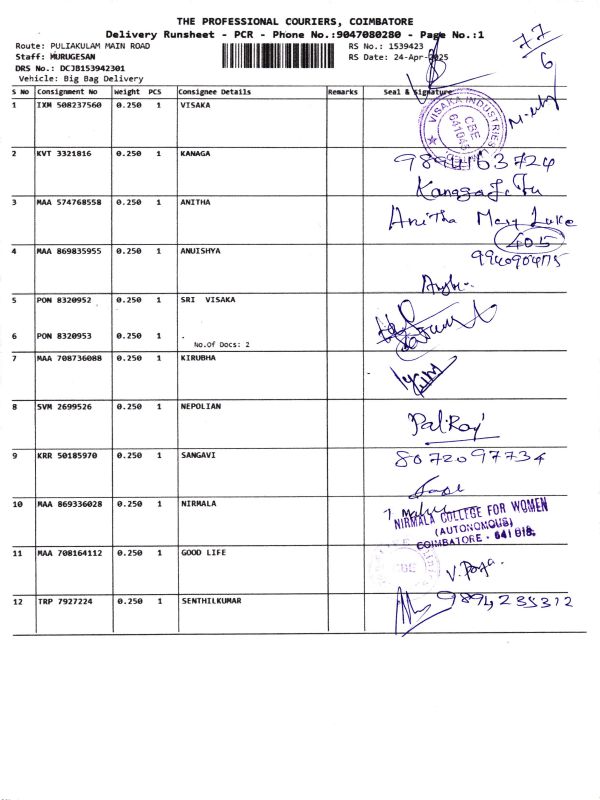 THE PROFESSIONAL COURIERS, COIMBATORE
Delivery Runsheet - PCR - Phone No.:9047080280 - Page No.:1
Route: PULIAKULAM MAIN ROAD
RS No.: 1539423
77/6
Staff: MURUGESAN
RS Date: 24-Apr-2025
DRS No.: DCJB153942301
Vehicle: Big Bag Delivery
S No Consignment No Weight PCS Consignee Details Remarks Seal & Signature
1 IXM 508237560 0.250 1 VISAKA
VISAKA INDUSTRIES
CBE
641045
2 KVT 3321816 0.250 1 KANAGA
9894163724
3 MAA 574768558 0.250 1 ANITHA
Anitha Mary Luke
405
4 MAA 869835955 0.250 1 ANUISHYA
5 PON 8320952 0.250 1 SRI VISAKA
6 PON 8320953 0.250 1 .
No.Of Docs: 2
7 MAA 708736088 0.250 1 KIRUBHA
8 SVM 2699526 0.250 1 NEPOLIAN
9 KRR 50185970 0.250 1 SANGAVI
8072097734
10 MAA 869336028 0.250 1 NIRMALA
NIRMALA COLLEGE FOR WOMEN
(AUTONOMOUS)
COIMBATORE - 641 018.
11 MAA 708164112 0.250 1 GOOD LIFE
12 TRP 7927224 0.250 1 SENTHILKUMAR
9894235312